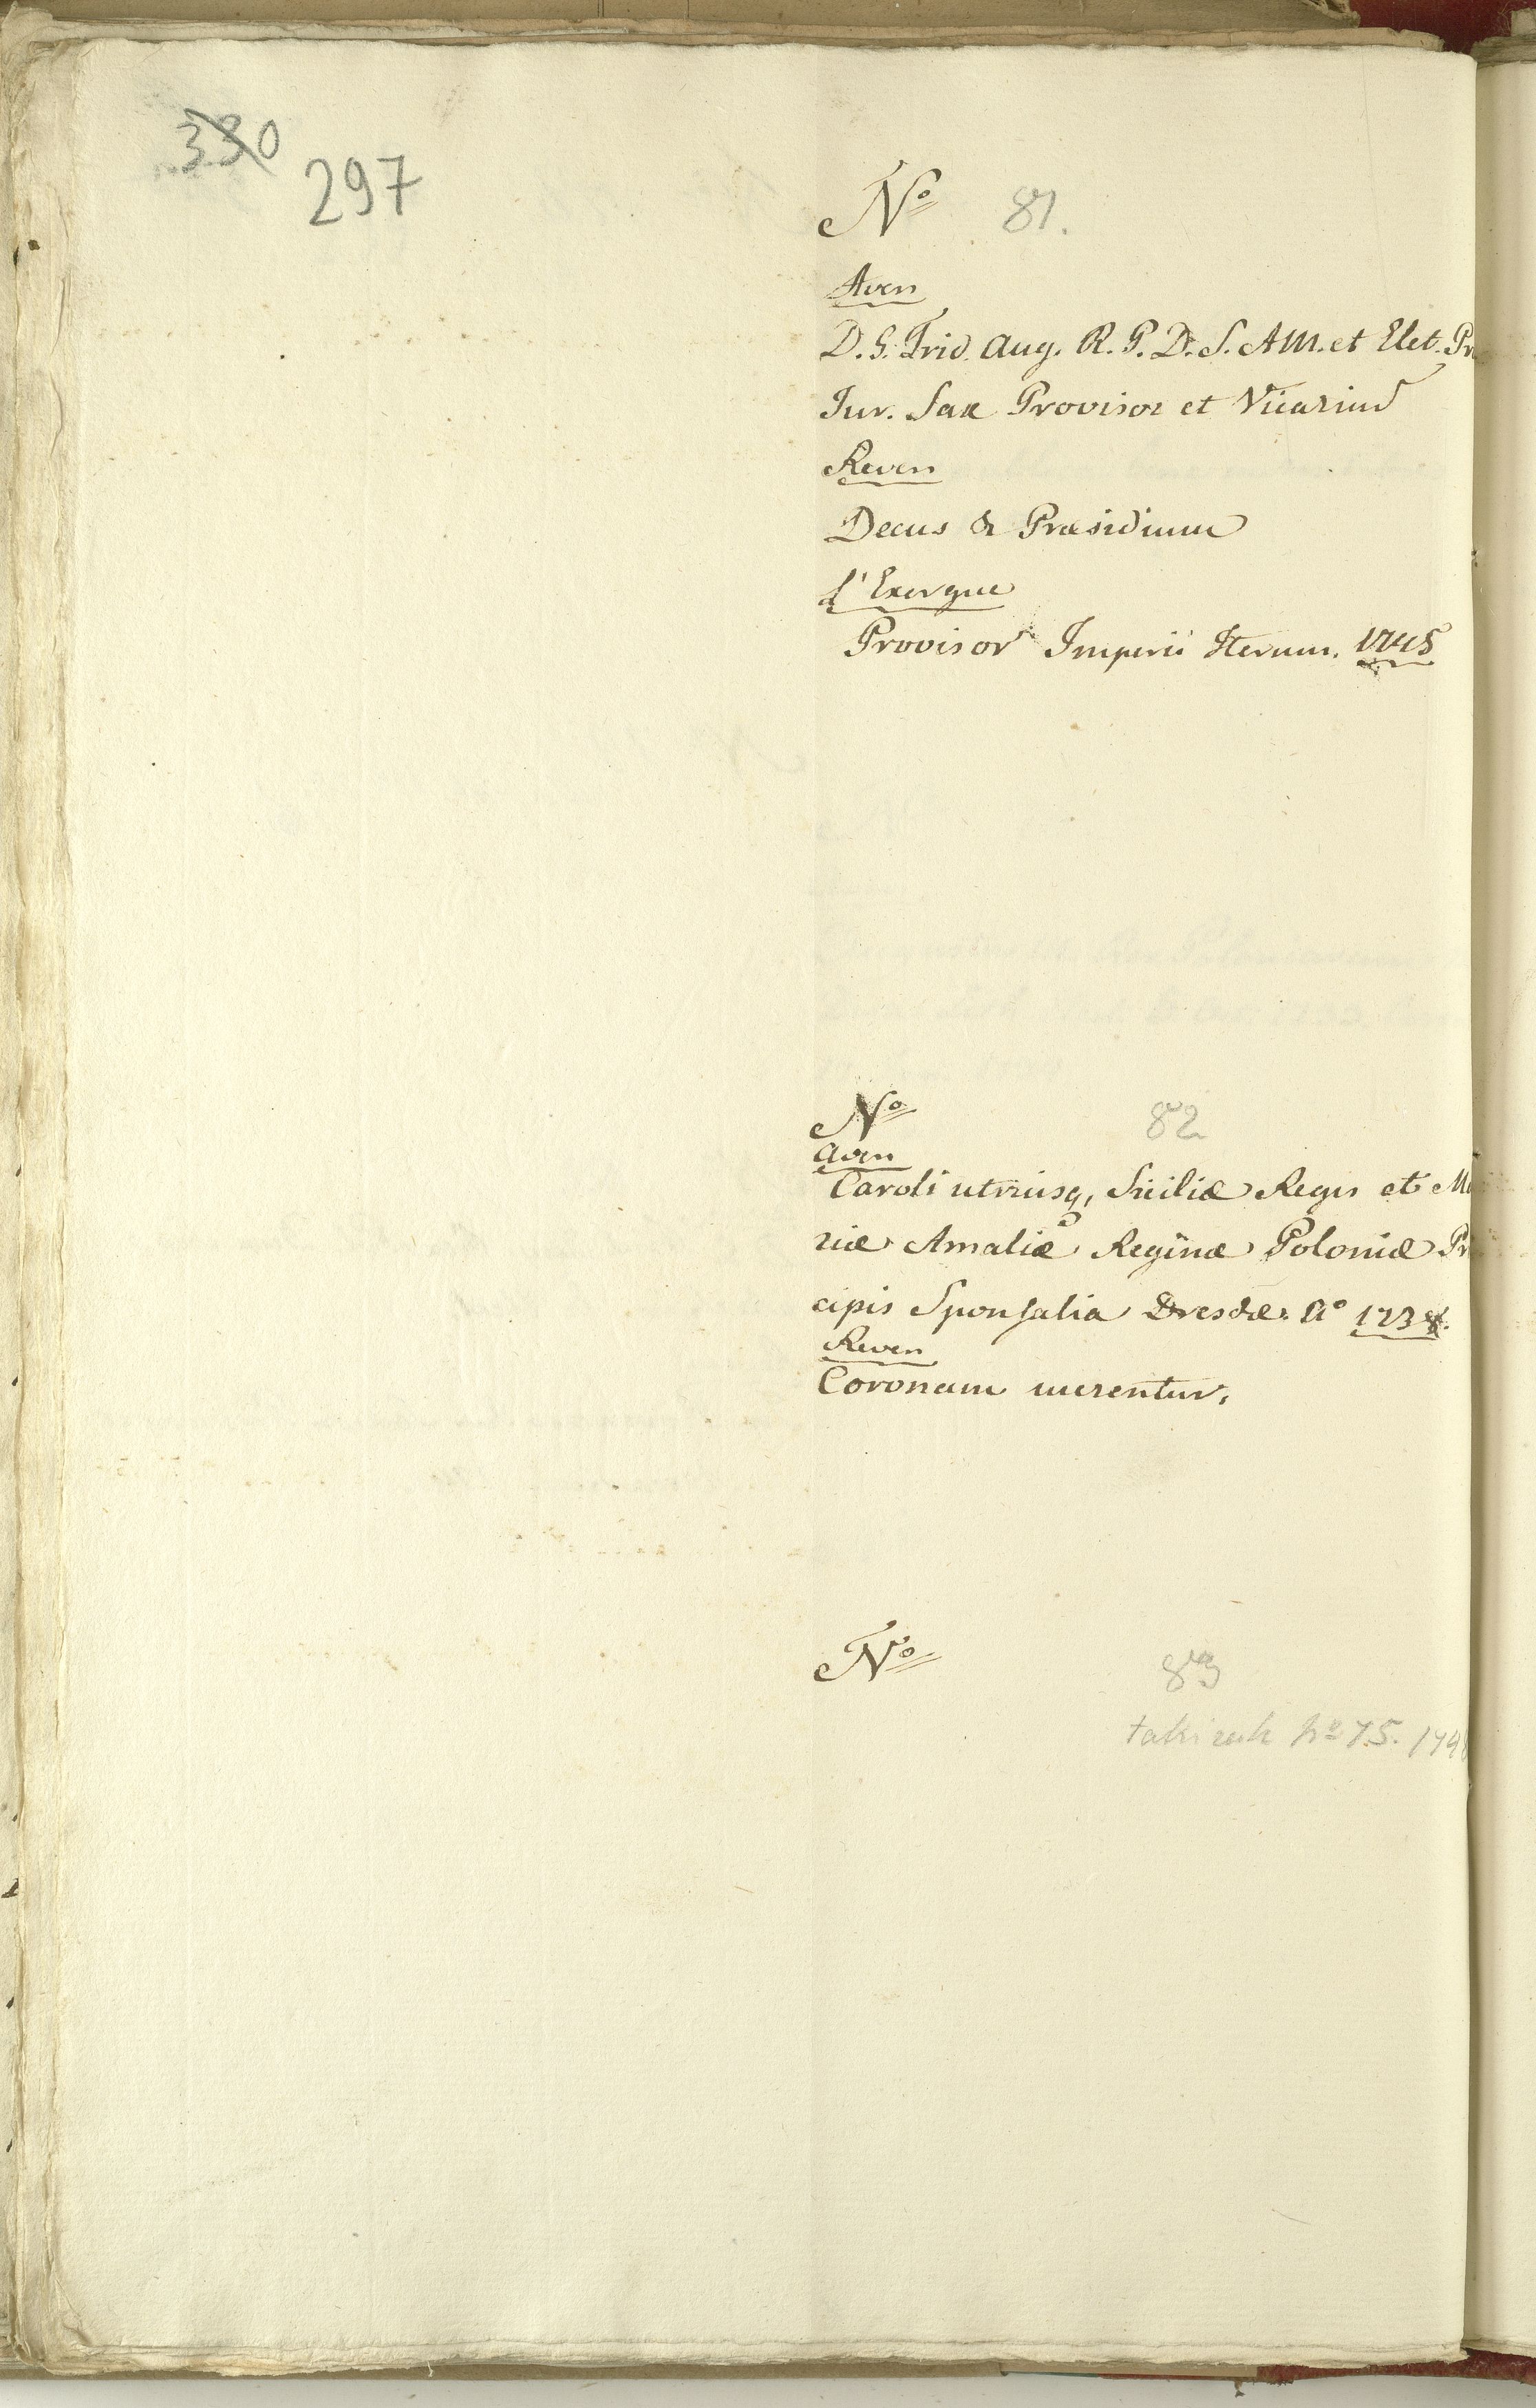 330
297
No 81.
Aven
D. G. Frid. Aug. R. P. D. S. A M. et Elct. Pr
Iur. Sax Provisor et Vicarius
Reven
Decus & Præsidium
l'Exergue
Provisor Imperii Iterum. 1745
No 82
Aven
Caroli utriusq, Siciliæ Regis et Ma
riæ Amaliæ Reginæ Poloniæ Pr
cipis Sponsalia Dresdæ. Ao 1738.
Reven
Coronam merentur,
No 83
taki no 75.